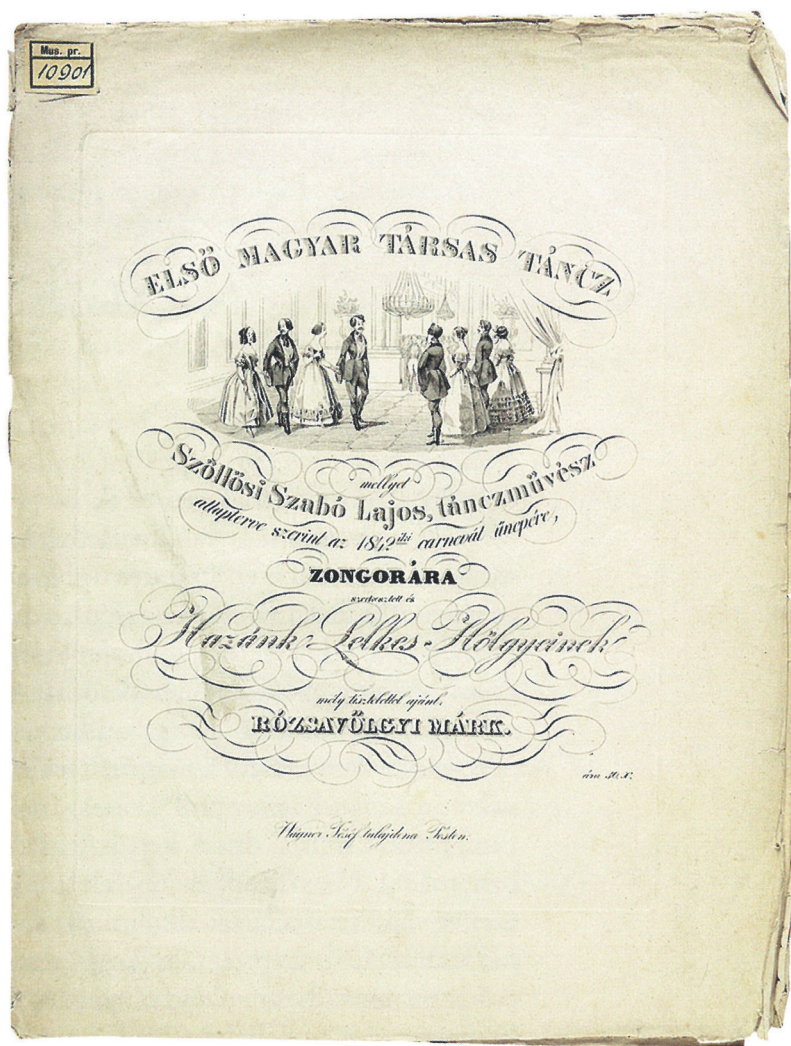 Mus. pr.
10901
ELSŐ MAGYAR TÁRSAS TÁNCZ
mellyet
Szöllösi Szabó Lajos, tánczművész
allapterve szerint az 1842iki carnevál űnepére,
ZONGORÁRA
szerkesztett és
Hazánk Lelkes-Hölgyeinek
mély tisztelettel ajánl,
RÓZSAVÖLGYI MÁRK.
ára
Wagner Jósef tulajdona Pesten.